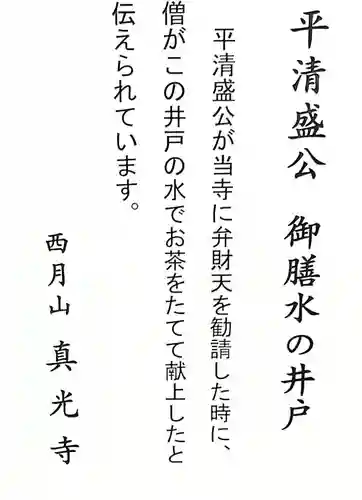 平清盛公 御膳水の井戸
平清盛公が当寺に弁財天を勧請した時に、
僧がこの井戸の水でお茶をたてて献上したと
伝えられています。
西月山 真光寺